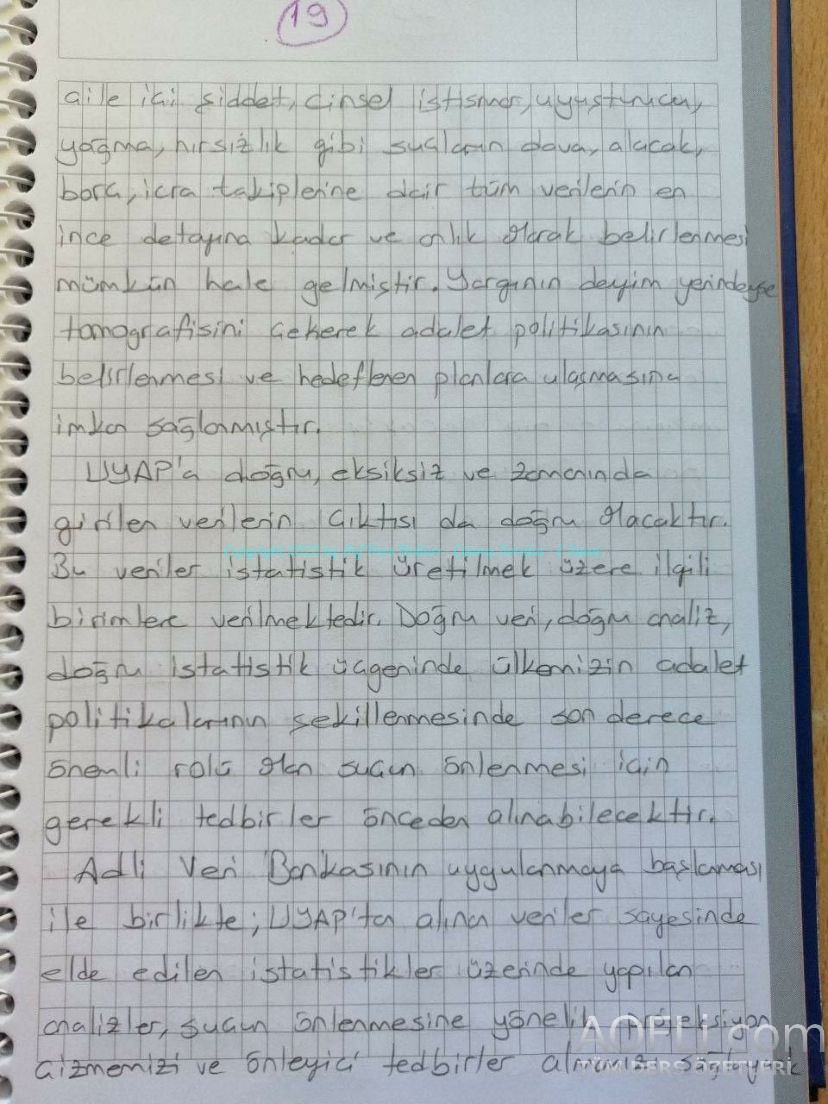 19
aile içi şiddet, cinsel istismar, uyuşturucu,
yağma, hırsızlık gibi suçların dava, alacak,
borç, icra takiplerine dair tüm verilerin en
ince detayına kadar ve anlık olarak belirlenmesi
mümkün hale gelmiştir. Yargının deyim yerindeyse
tomografisini çekerek adalet politikasının
belirlenmesi ve hedeflenen planlara ulaşmasına
imkan sağlanmıştır.
UYAP'a doğru, eksiksiz ve zamanında
girilen verilerin çıktısı da doğru olacaktır.
Bu veriler istatistik üretilmek üzere ilgili
birimlere verilmektedir. Doğru veri, doğru analiz,
doğru istatistik üçgeninde ülkemizin adalet
politikalarının şekillenmesinde son derece
önemli rolü olan suçun önlenmesi için
gerekli tedbirler önceden alınabilecektir.
Adli Veri Bankasının uygulanmaya başlaması
ile birlikte; UYAP'tan alınan veriler sayesinde
elde edilen istatistikler üzerinde yapılan
analizler, suçun önlenmesine yönelik projeksiyon
çizmemizi ve önleyici tedbirler almamızı sağlayarak
AOFLi.com